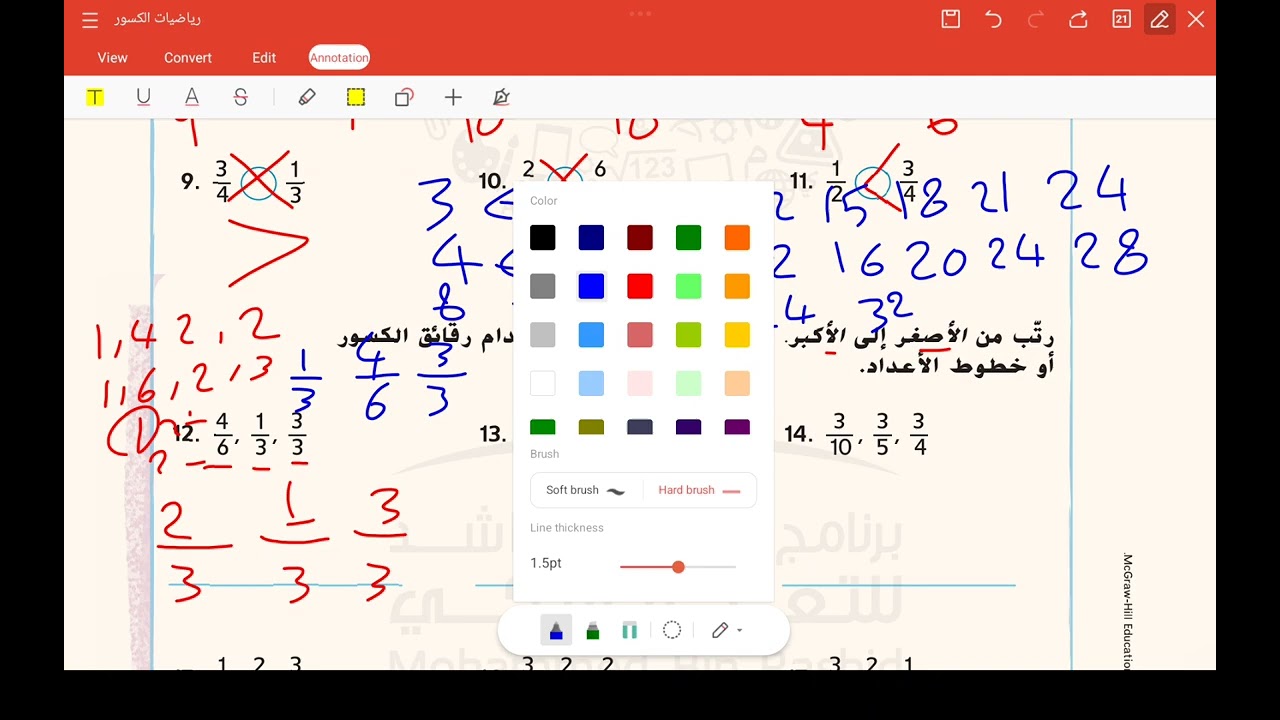 رياضيات الكسور
21
View Convert Edit Annotation
T U A S
9. 3/4 1/3
10. 2 6
11. 1/2 3/4
>
3 15 18 21 24
4 16 20 24 28
8 32
رتّب من الأصغر إلى الأكبر. دام رقائق الكسور
أو خطوط الأعداد.
1, 4 2, 2
1, 6, 2, 3
1/3 4/6 3/3
12. 4/6, 1/3, 3/3
13.
14. 3/10, 3/5, 3/4
2/3 1/3 3/3
Color
Brush
Soft brush Hard brush
Line thickness
1.5pt
برنامج
McGraw-Hill Education
1 2 3
3 2 2
3 2 1
Mohammed Bin Rashid